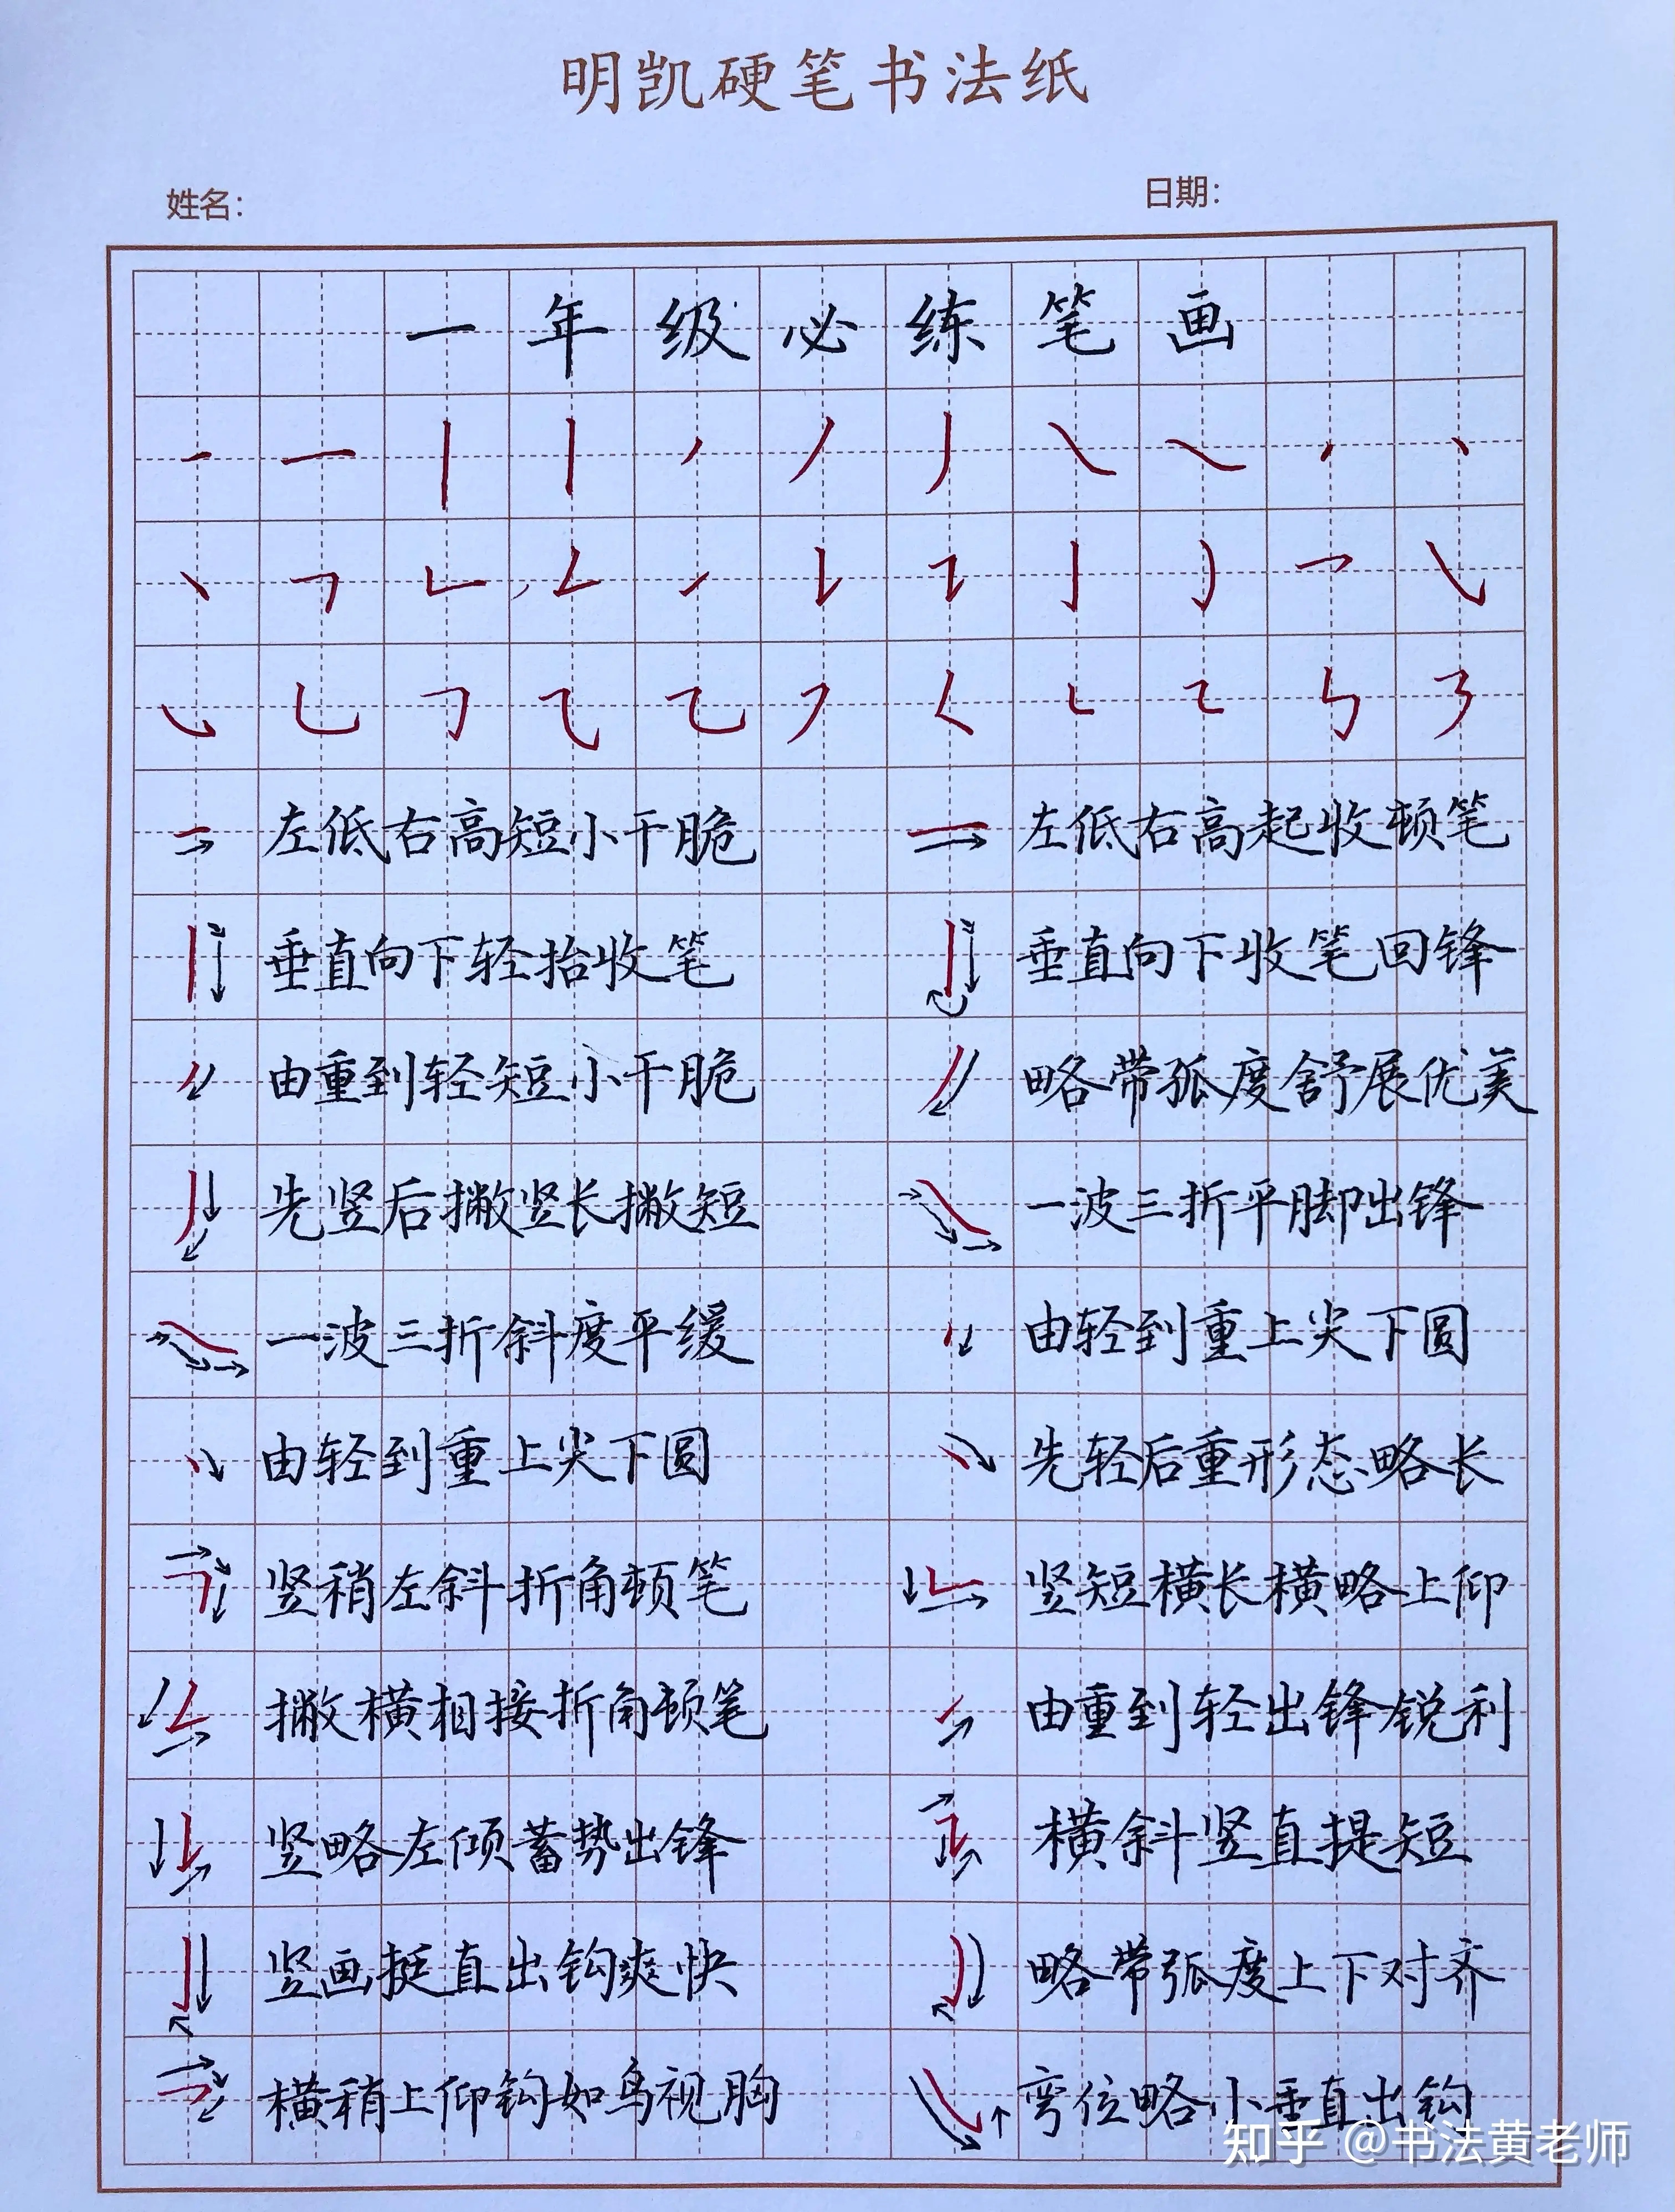 明凯硬笔书法纸
姓名： 日期：
一年级必练笔画
左低右高短小干脆 左低右高起收顿笔
垂直向下轻抬收笔 垂直向下收笔回锋
由重到轻短小干脆 略带弧度舒展优美
先竖后撇竖长撇短 一波三折平脚出锋
一波三折斜度平缓 由轻到重上尖下圆
由轻到重上尖下圆 先轻后重形态略长
竖稍左斜折角顿笔 竖短横长横略上仰
撇横相接折角顿笔 由重到轻出锋锐利
竖略左倾蓄势出锋 横斜竖直提短
竖画挺直出钩爽快 略带弧度上下对齐
横稍上仰钩如鸟视胸 弯位略小垂直出钩
知乎 @书法黄老师